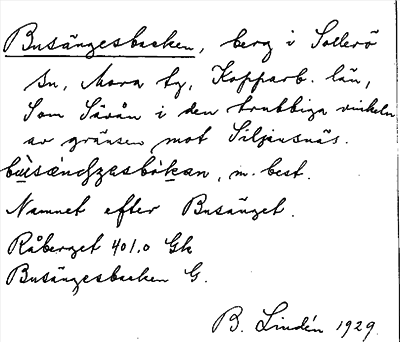 Busängesbacken, berg i Sollerö
sn, Mora tg, Kopparb. län,
Som Särån i den trubbiga vinkeln
av gränsen mot Siljansnäs.
m. best.
Namnet efter Busänget.
Råberget 401.0 Gk
Busängesbacken G.
B. Lindén 1929.